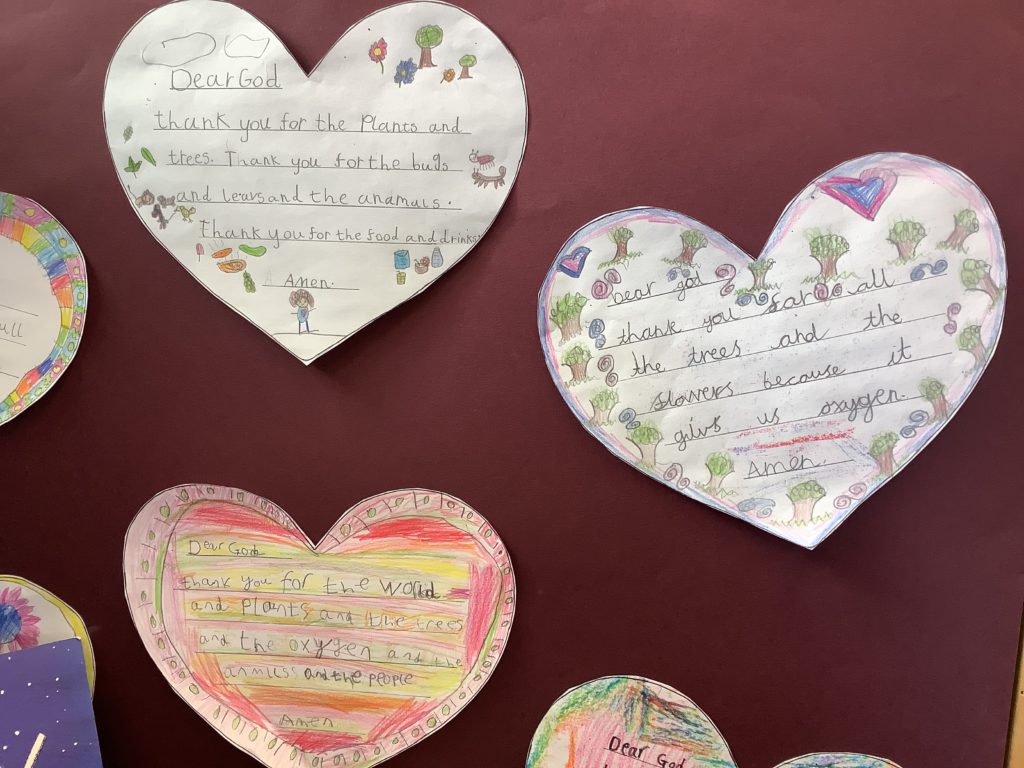 Dear God
thank you for the Plants and
trees. Thank you for the bugs
and leavs and the anamals.
Thank you for the food and drinks.
Amen.
Dear god
thank you for all
the trees and the
flowers because it
givs us oxygen.
Amen.
ull
Dear God
thank you for the world
and Plants and the trees
and the oxygen and the
and the people
Amen
Dear God